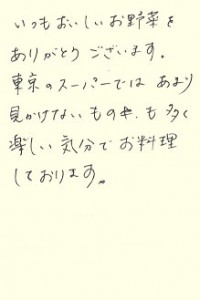 いつもおいしいお野菜を
ありがとうございます。
東京のスーパーでは あまり
見かけないものも 多く
楽しい気分でお料理
しております。